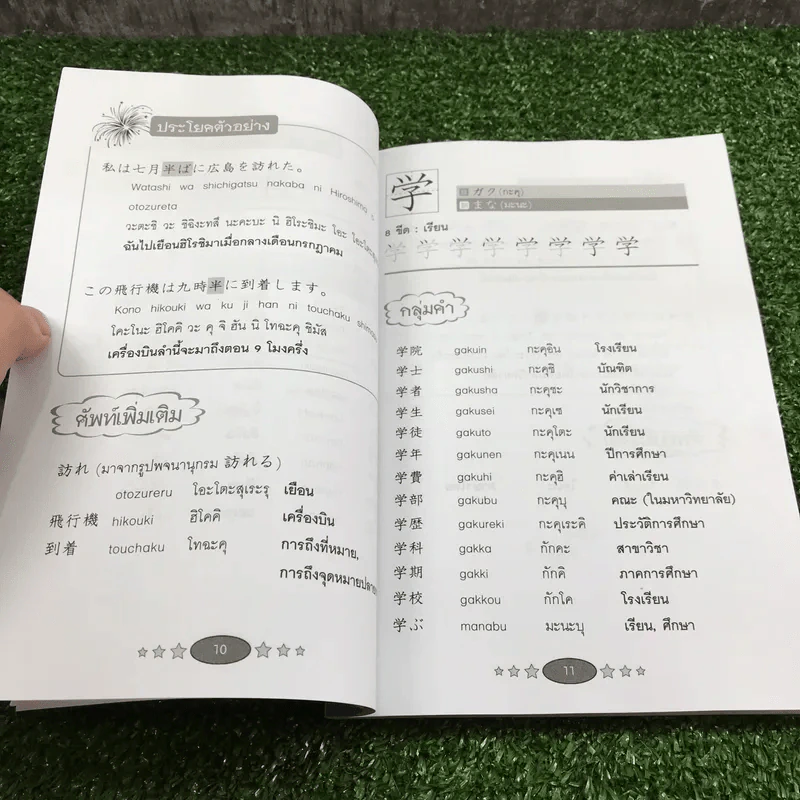 ประโยคตัวอย่าง
私は七月半ばに広島を訪れた。
Watashi wa shichigatsu nakaba ni Hiroshima o
otozureta
วะตะชิ วะ ชิฉิงะทสึ นะคะบะ นิ ฮิโระชิมะ โอะ
ฉันไปเยือนฮิโรชิมาเมื่อกลางเดือนกรกฎาคม
この飛行機は九時半に到着します。
Kono hikouki wa ku ji han ni touchaku
โคะโนะ ฮิโคคิ วะ คุ จิ ฮัน นิ โทฉะคุ ชิมัส
เครื่องบินลำนี้จะมาถึงตอน 9 โมงครึ่ง
ศัพท์เพิ่มเติม
訪れ (มาจากรูปพจนานุกรม 訪れる)
otozureru โอะโตะสุเระรุ เยือน
飛行機 hikouki ฮิโคคิ เครื่องบิน
到着 touchaku โทฉะคุ การถึงที่หมาย,
การถึงจุดหมาย
10
学
ガク (กะคุ)
まな (มะนะ)
8 ขีด : เรียน
学 学 学 学 学 学 学 学
กลุ่มคำ
学院 gakuin กะคุอิน โรงเรียน
学士 gakushi กะคุชิ บัณฑิต
学者 gakusha กะคุชะ นักวิชาการ
学生 gakusei กะคุเซ นักเรียน
学徒 gakuto กะคุโตะ นักเรียน
学年 gakunen กะคุเนน ปีการศึกษา
学費 gakuhi กะคุฮิ ค่าเล่าเรียน
学部 gakubu กะคุบุ คณะ (ในมหาวิทยาลัย)
学歴 gakureki กะคุเระคิ ประวัติการศึกษา
学科 gakka กักคะ สาขาวิชา
学期 gakki กักคิ ภาคการศึกษา
学校 gakkou กักโค โรงเรียน
学ぶ manabu มะนะบุ เรียน, ศึกษา
11